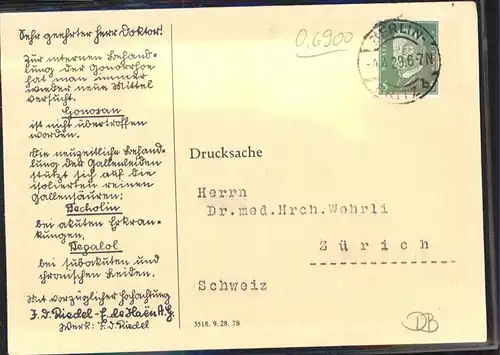 Sehr geehrter Herr Doktor!
Zur internen Behand-
lung der Gonorrhoe
hat man immer
wieder neue Mittel
versucht.
Gonosan
ist nicht übertroffen
worden.
Die neuzeitliche Behand-
lung der Gallenleiden
stützt sich auf die
isolierten reinen
Gallensäuren:
Decholin
bei akuten Erkran-
kungen,
Degalol
bei subakuten und
chronischen Leiden.
Mit vorzüglicher Hochachtung
J.D. Riedel-E. de Haën A.G.
Werk: J.D. Riedel
0,6900
BERLIN-
BRITZ b
6-7N
5
Drucksache
Herrn
Dr.med.Hrch.Wehrli
Zürich
Schweiz
3518. 9. 28. 78
DB